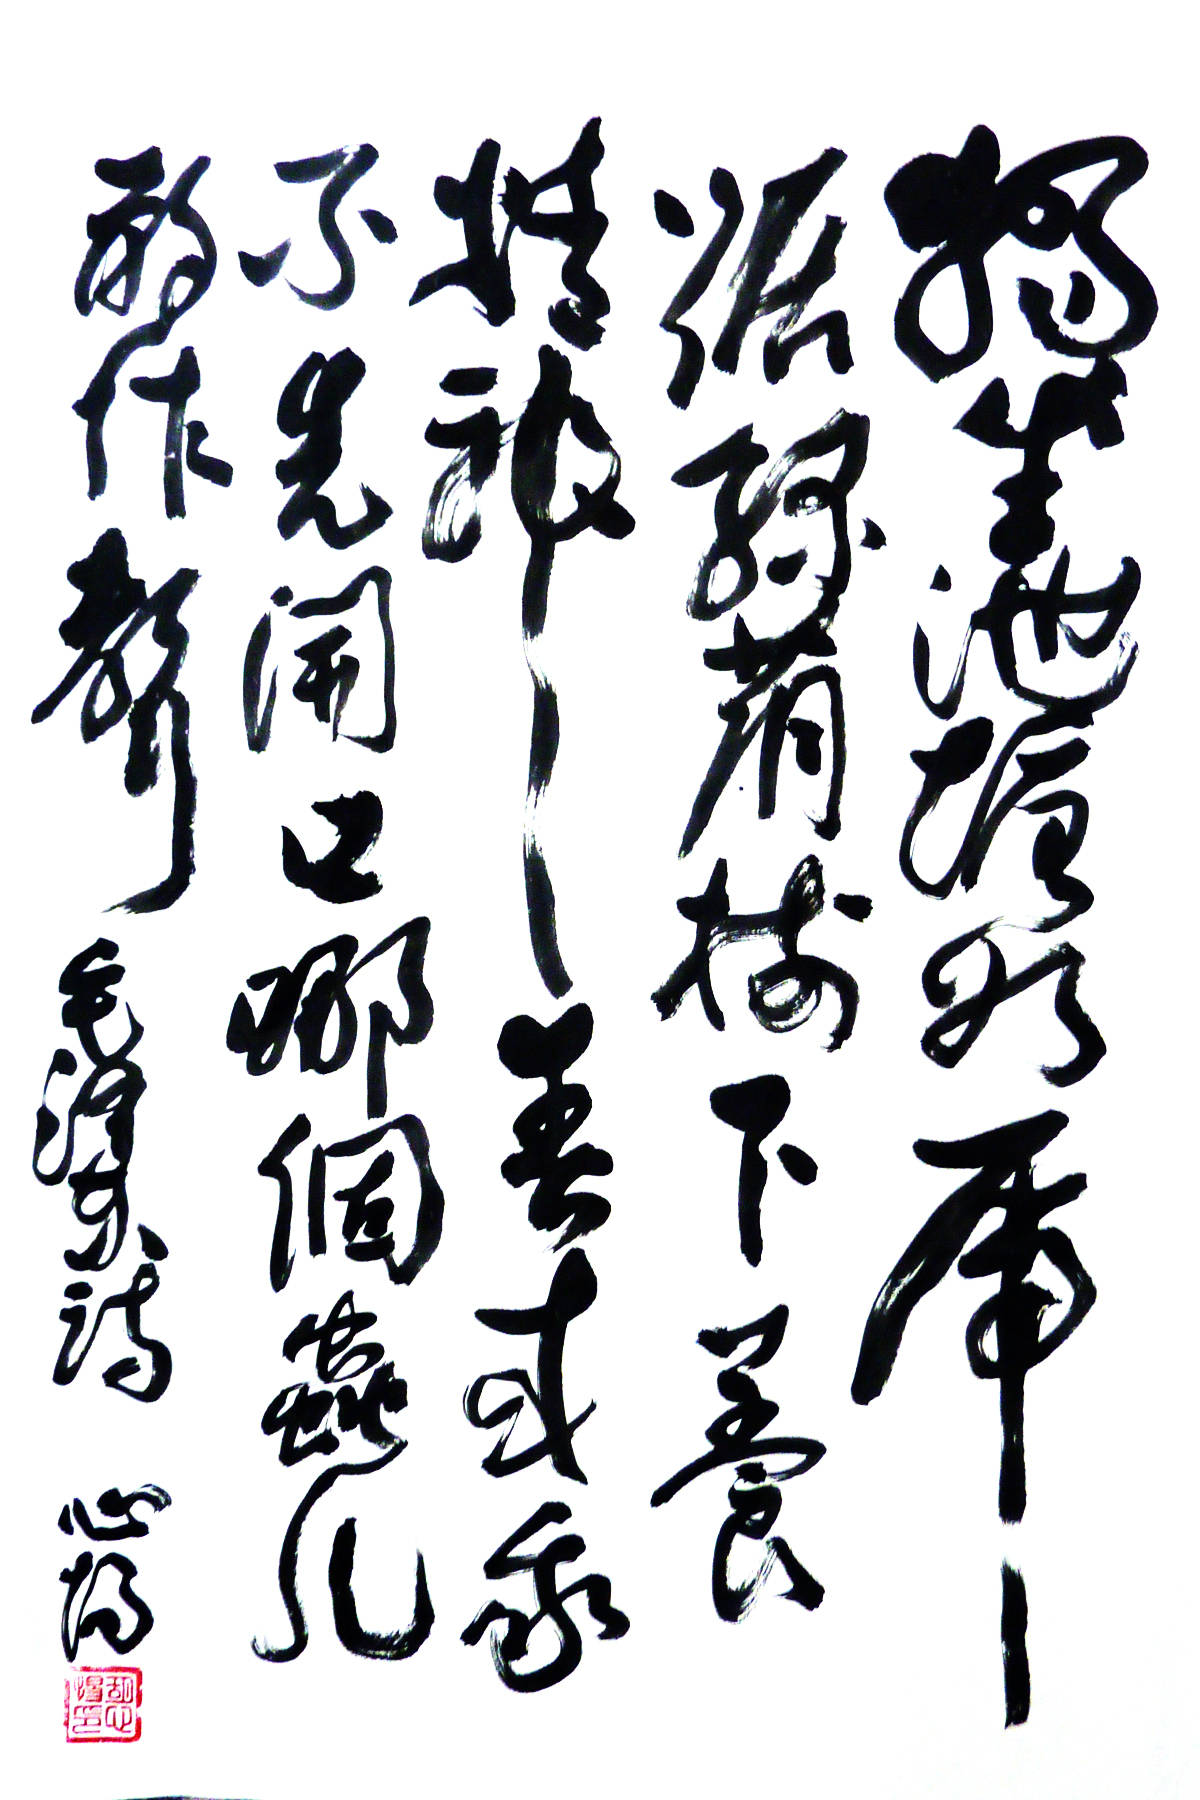 獨坐池塘如虎
踞綠蔭樹下養
精神春來我
不先開口哪個蟲兒
敢作聲 毛澤東詩 心